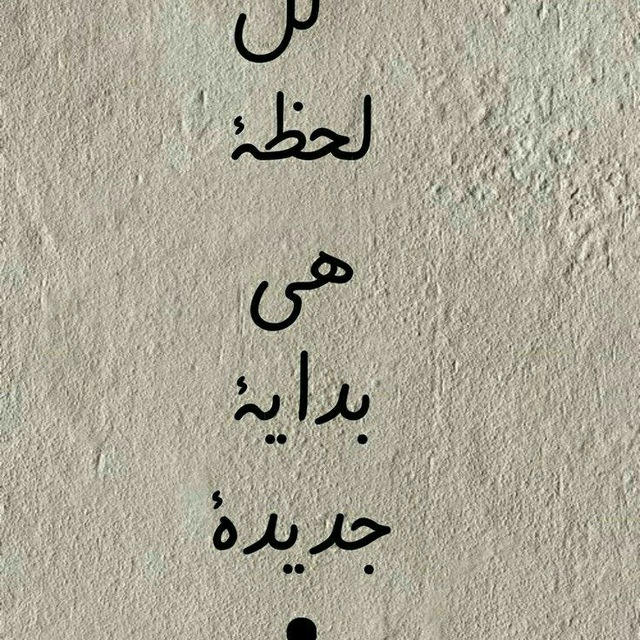 كل
لحظۀ
هى
بدايۀ
جديدۀ